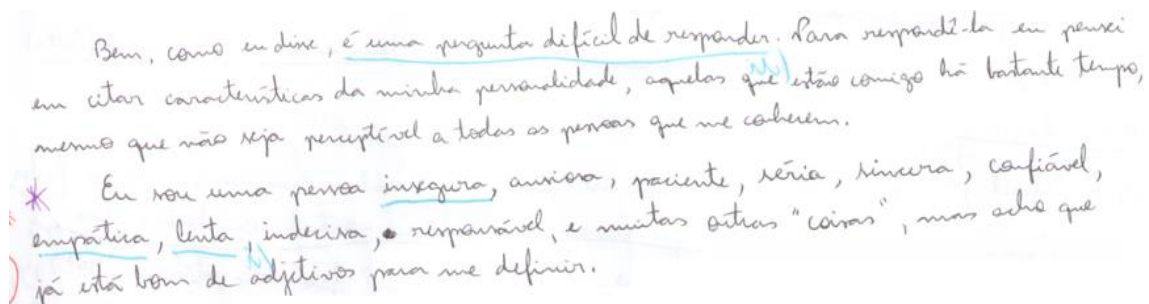 Bem, como eu disse, é uma pergunta difícil de responder. Para respondê-la eu pensei
em citar características da minha personalidade, aquelas que estão comigo há bastante tempo,
mesmo que não seja perceptível a todas as pessoas que me conhecem.
Eu sou uma pessoa insegura, ansiosa, paciente, séria, sincera, confiável,
empática, lenta, indecisa, responsável, e muitas outras "coisas", mas acho que
já está bom de adjetivos para me definir.